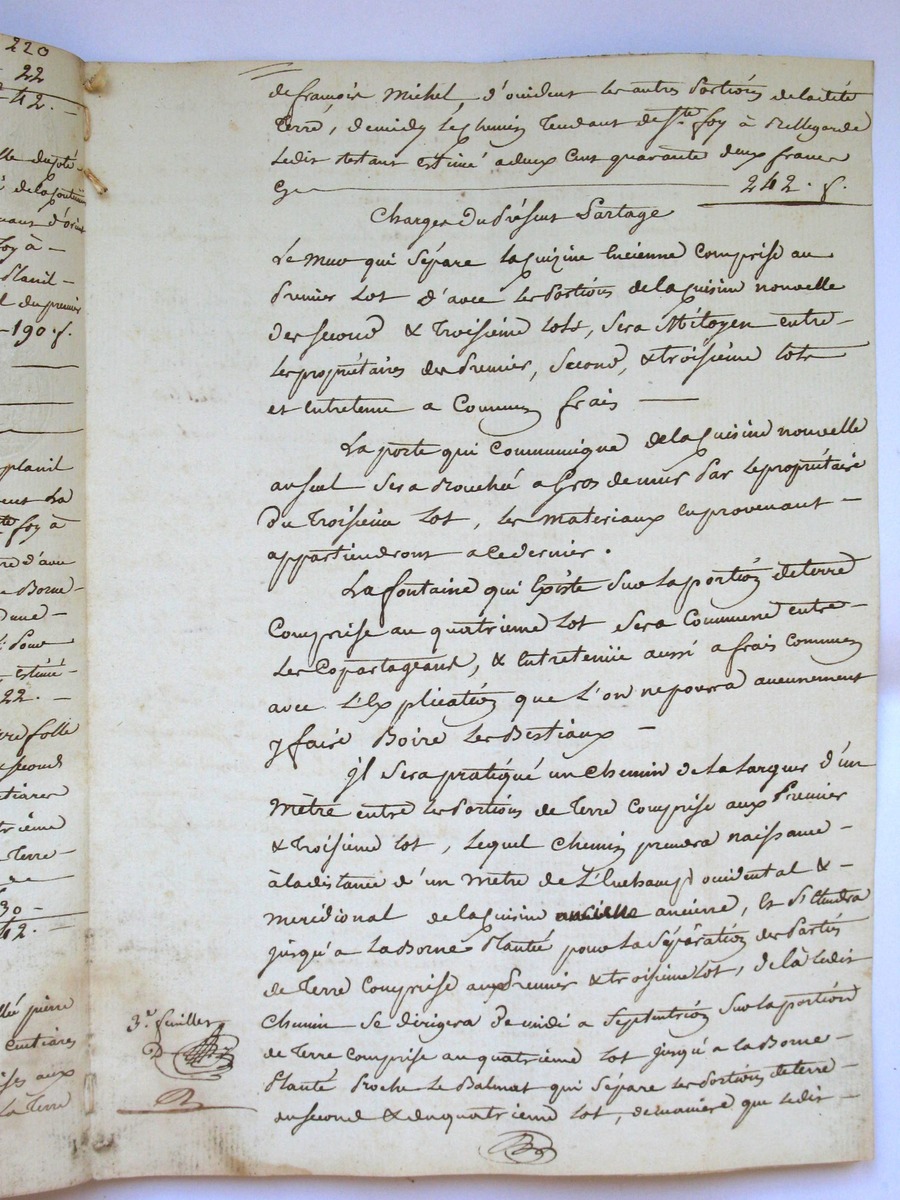 220
22
42. —
de françois Michel, d'occident les autres Portions de ladite
terre, de midy le chemin tendant de Ste foy à Bellegarde
Ledit restant estimé a deux cent quarante deux francs
Cy — 242. f.
Charges Du Présent Partage
Le mur qui sépare la Cuizine ancienne Comprise au
Premier Lot d'avec les Portions de la Cuisine nouvelle
des second & troisieme lots, sera Mitoyen entre —
les propriétaires des Premier, Second, & troisième lots
et entretenu a Commun frais —
La porte qui Communique de la Cuisine nouvelle
au suel sera Bouchée a Gros de mur Par le propriétaire
Du troisieme Lot, les materiaux en provenant —
appartiendront a ce dernier.
La fontaine qui Existe sur la portion de terre
Comprise au quatrieme Lot sera Commune entre —
Les Copartageans, & Entretenüe aussi a frais Communs
avec L'Explication que L'on ne pourra aucunement
y faire Boire les Bestiaux —
jl sera pratiqué un chemin de la largeur d'un
mètre entre les Portions de terre Comprise aux Premier
& troisieme Lot, Lequel chemin prendra naissance —
à la distance d'un mètre de L'Enchamp occidental & —
meridional de la Cuisine ancienne, Et S'étendra
jusqu'a la Borne Plantée pour la Séparation des Parties
de terre Comprise aux Premier & troisieme Lot, de là ledit
Chemin se dirigera de midi a septentrion sur la portion
de terre comprise au quatrieme lot jusqu'a la Borne —
Planté Proche le Balmat qui sépare les Portions de terre —
au second & au quatrieme Lot, de maniere que ledit —
3e. feuillet
-190 f.
planil
Ste foy à
Borne —
estimé —
22. —
folle
second
Terre —
42. —
pierre
centiares
aux
La Terre